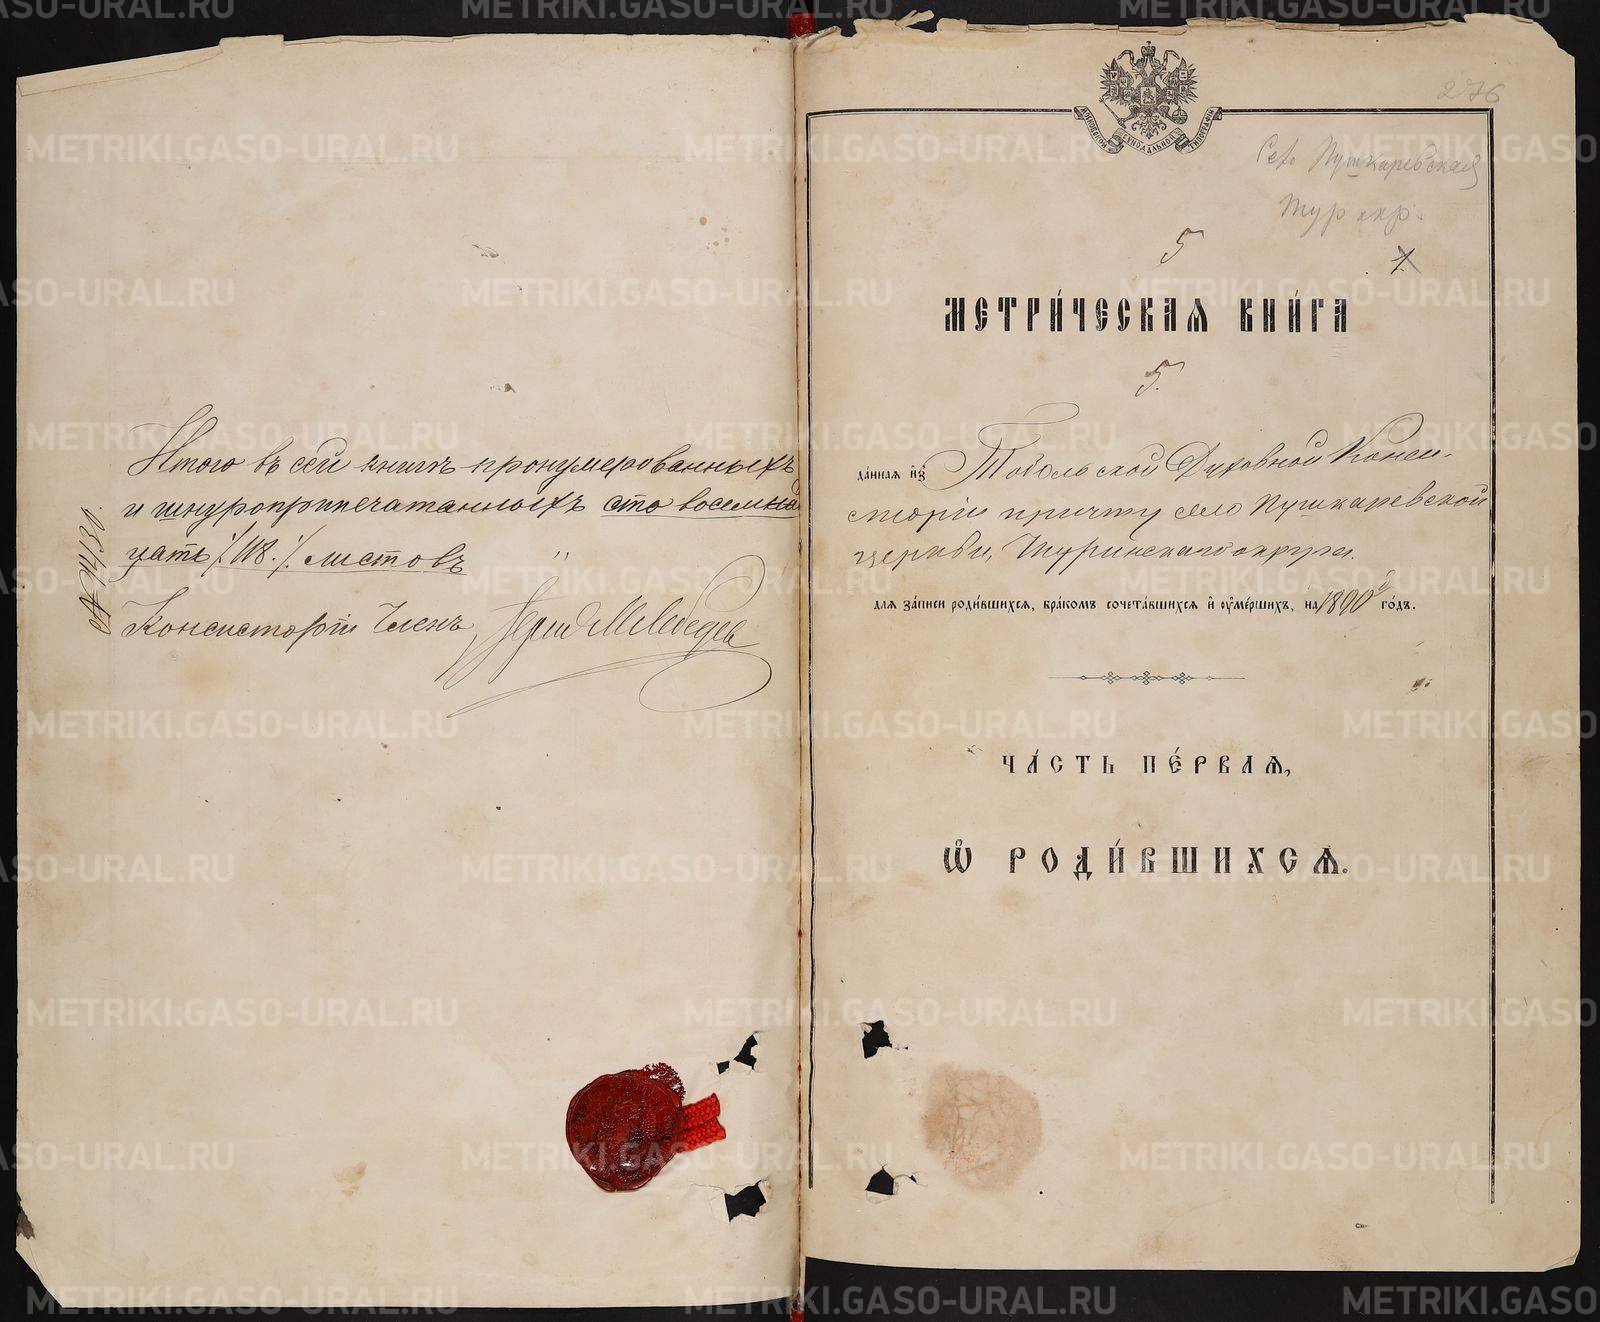 Итого въ сей книгѣ пронумерованныхъ
и шнуроприпечатанныхъ сто восемнад
цать /.118./. листовъ
Консисторіи Членъ, Іерей М Лебедев
276
Село Пушкаревская
Тур окр.
5
1
МЕТРИ́ЧЕСКАѦ КНИ́ГА
5.
да́нная и҆з̾ Тобольской Духовной Конси-
сторіи причту село Пушкаревской
церкви, Туринскаго округа.
для за́писи роди́вшихся, бра́комъ сочета́вшихся и҆ ᲂу҆ме́ршихъ, на 1890й го́дъ.
ЧА́СТЬ ПЕ́РВАѦ,
Ѽ РОДИ́ВШИХСѦ.
METRIKI.GASO-URAL.RU